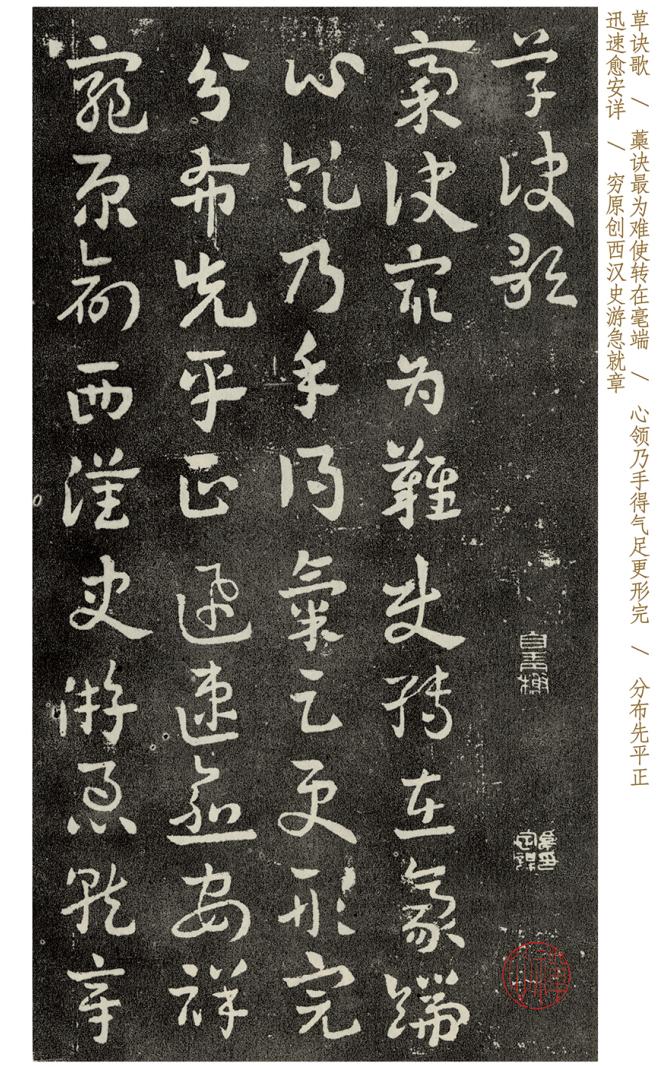 草诀歌 / 藁诀最为难使转在毫端 / 心领乃手得气足更形完 / 分布先平正
迅速愈安详 / 穷原创西汉史游急就章
草诀歌
藁诀最为难使转在毫端
心领乃手得氣足更形完
分布先平正迅速愈安祥
穷原创西漢史游急就章